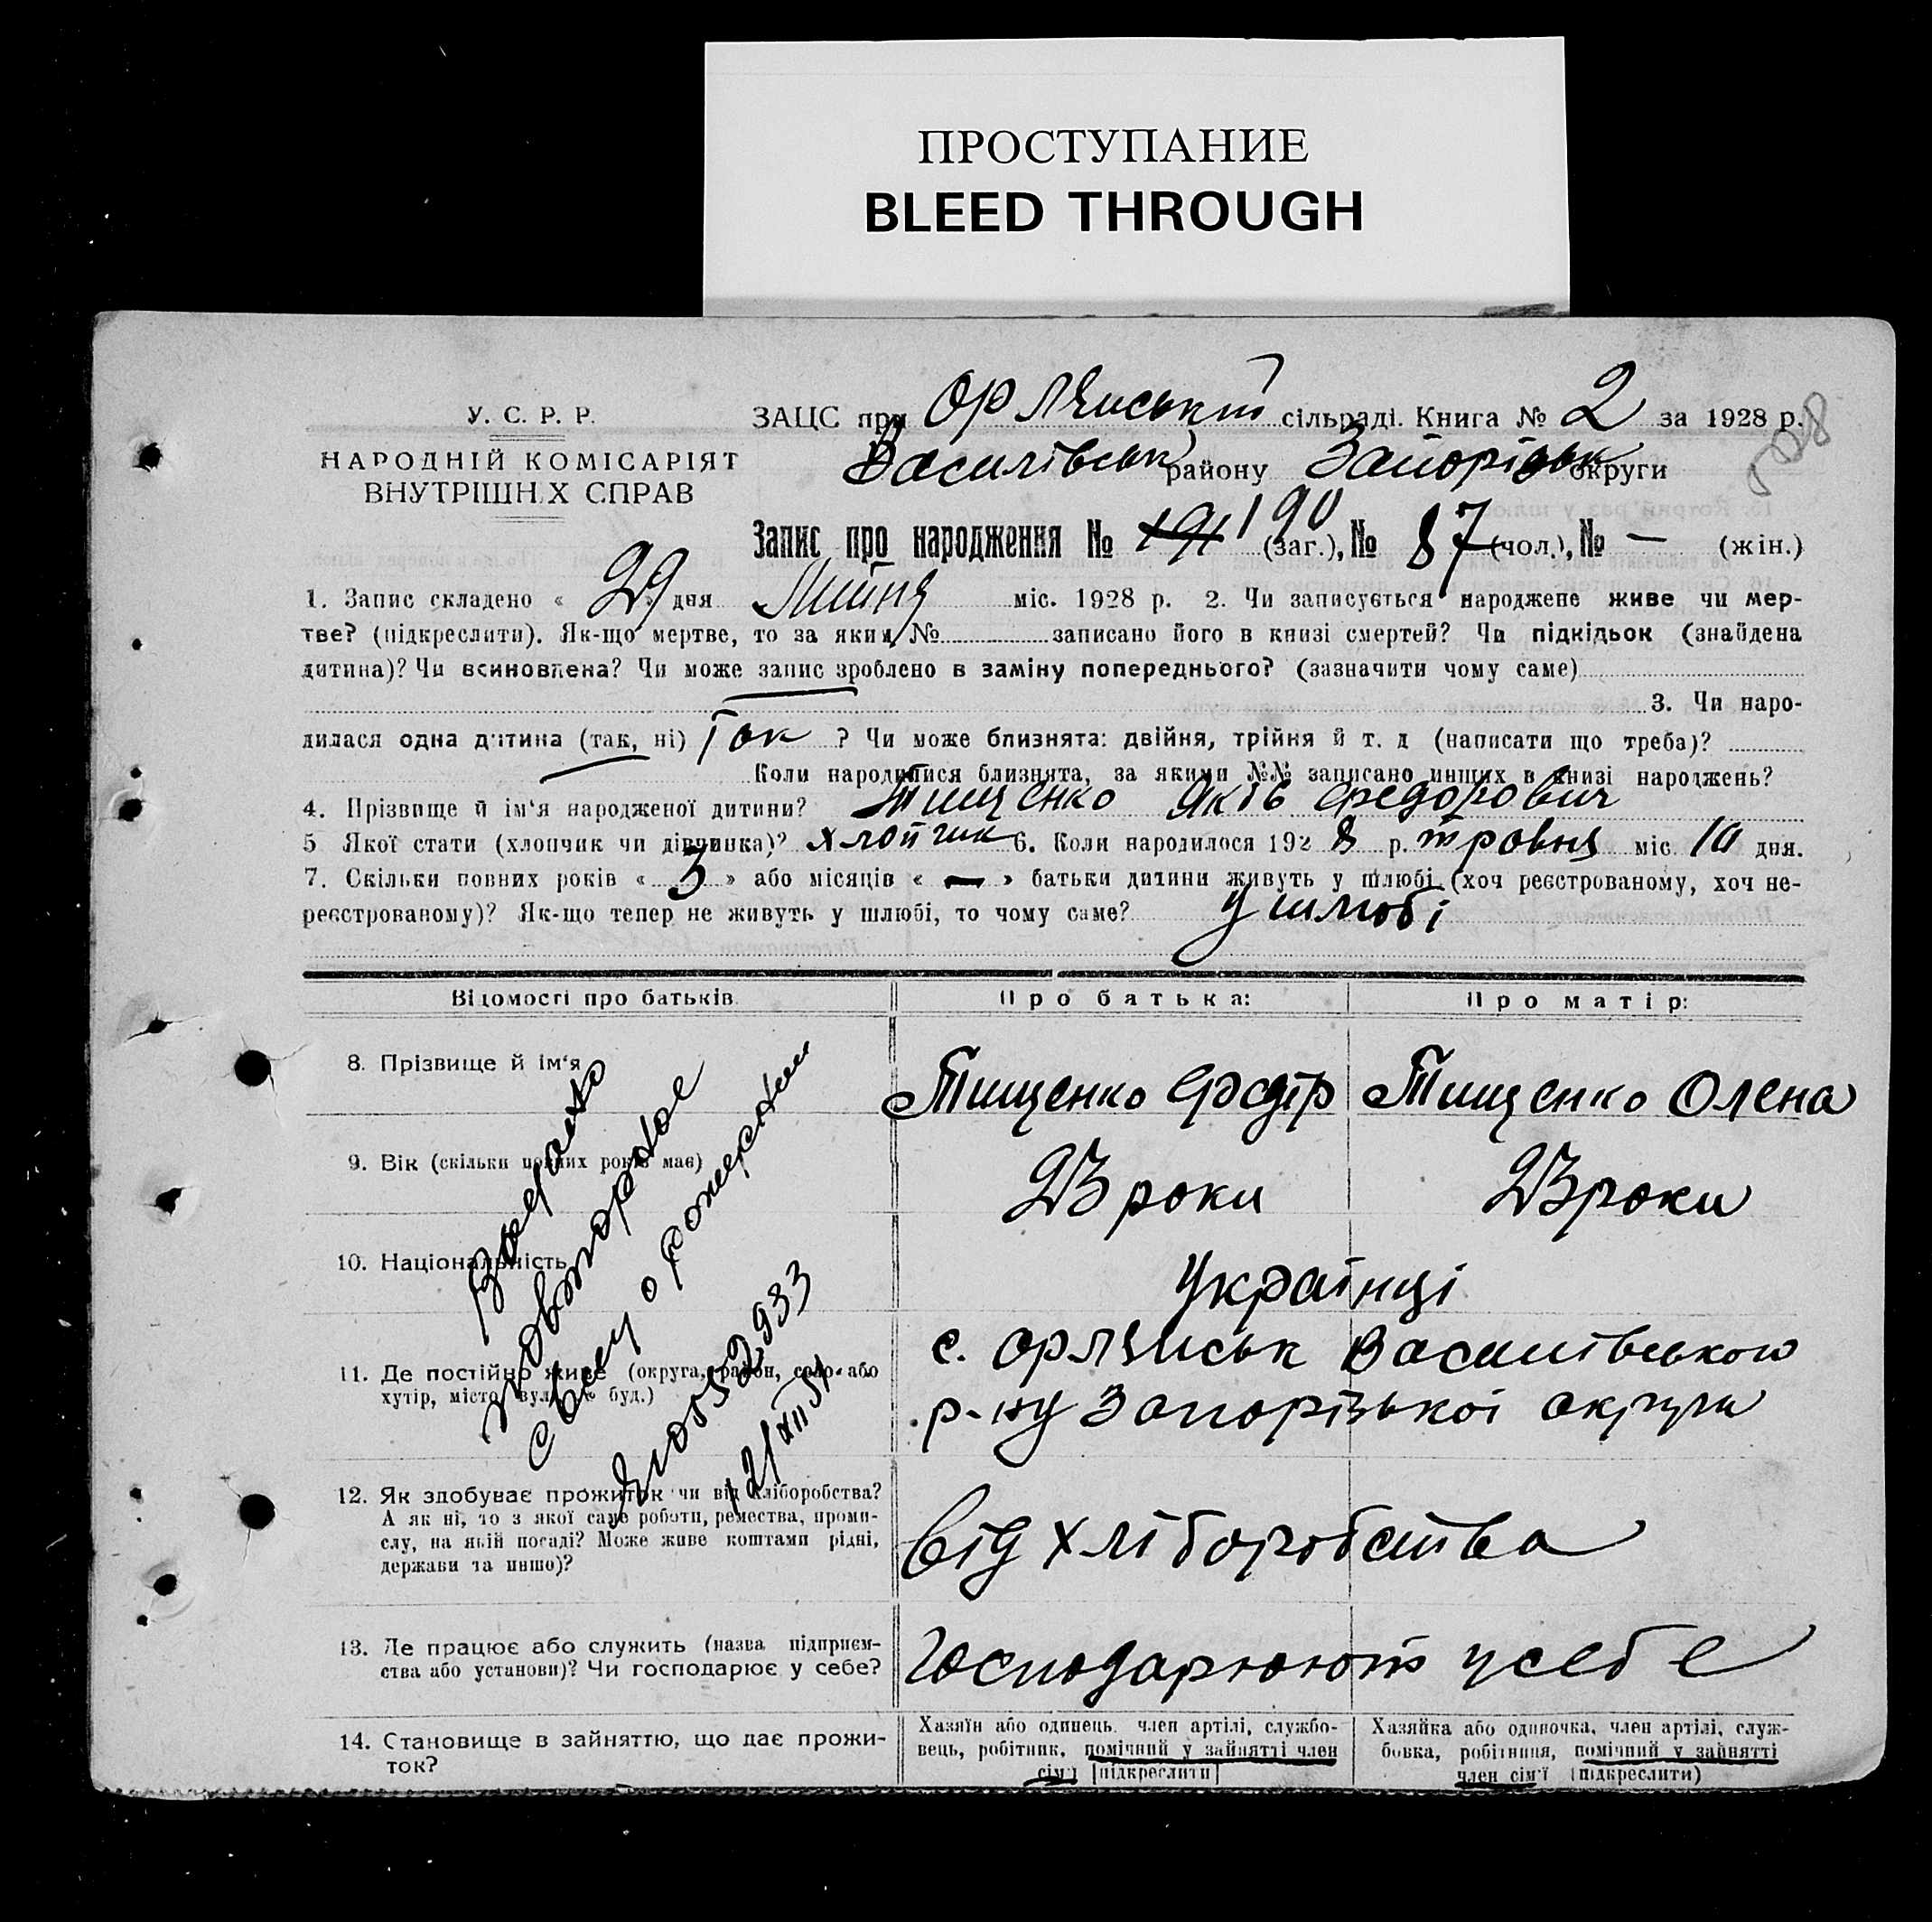 ПРОСТУПАНИЕ
BLEED THROUGH
У. С. Р. Р.
НАРОДНІЙ КОМІСАРІЯТ
ВНУТРІШНІХ СПРАВ
ЗАЦС при Орлянській сільраді. Книга № 2 за 1928 р.
Василівськ району Запорізьк округи
Запис про народження № 191 190 (заг.), № 87 (чол.), № — (жін.)
1. Запис складено « 29 » дня Липня міс. 1928 р. 2. Чи записується народжене живе чи мер-
тве? (підкреслити). Як-що мертве, то за яким № записано його в книзі смертей? Чи підкідьок (знайдена
дитина)? Чи всиновлена? Чи може запис зроблено в заміну попереднього? (зазначити чому саме)
3. Чи наро-
дилася одна дитина (так, ні) Так ? Чи може близнята: двійня, трійня й т. д (написати що треба)?
Коли народилися близнята, за якими №№ записано инших в книзі народжень?
4. Прізвище й ім'я народженої дитини? Тищенко Яків Федорович
5 Якої стати (хлопчик чи дівчинка)? хлопчик 6. Коли народилося 192 8 р. травня міс. 10 дня.
7. Скільки повних років « 3 » або місяців « — » батьки дитини живуть у шлюбі (хоч реєстрованому, хоч не-
реєстрованому)? Як-що тепер не живуть у шлюбі, то чому саме? у шлюбі
Відомості про батьків
Про батька:
Про матір:
8. Прізвище й ім'я
Тищенко Федір
Тищенко Олена
9. Вік (скільки повних років має)
23 роки
23 роки
10. Національність
Українці
11. Де постійно живе (округа, район, село або
хутір, місто, вул. № буд.)
с. Орлянськ Василівського
р-ну Запорізької округи
12. Як здобуває прожиток чи від хліборобства?
А як ні, то з якої саме роботи, ремества, проми-
слу, на якій посаді? Може живе коштами рідні,
держави та иншо)?
від хліборобства
13. Де працює або служить (назва підприєм-
ства або установи)? Чи господарює у себе?
господарюють у себе
14. Становище в зайняттю, що дає прожи-
ток?
Хазяїн або одинець, член артілі, службо-
вець, робітник, помічний у зайнятті член
сім'ї (підкреслити)
Хазяйка або одиночка, член артілі, служ-
бовка, робітниця, помічний у зайнятті
член сім'ї (підкреслити)
Выдано
повторное
свид о рождении